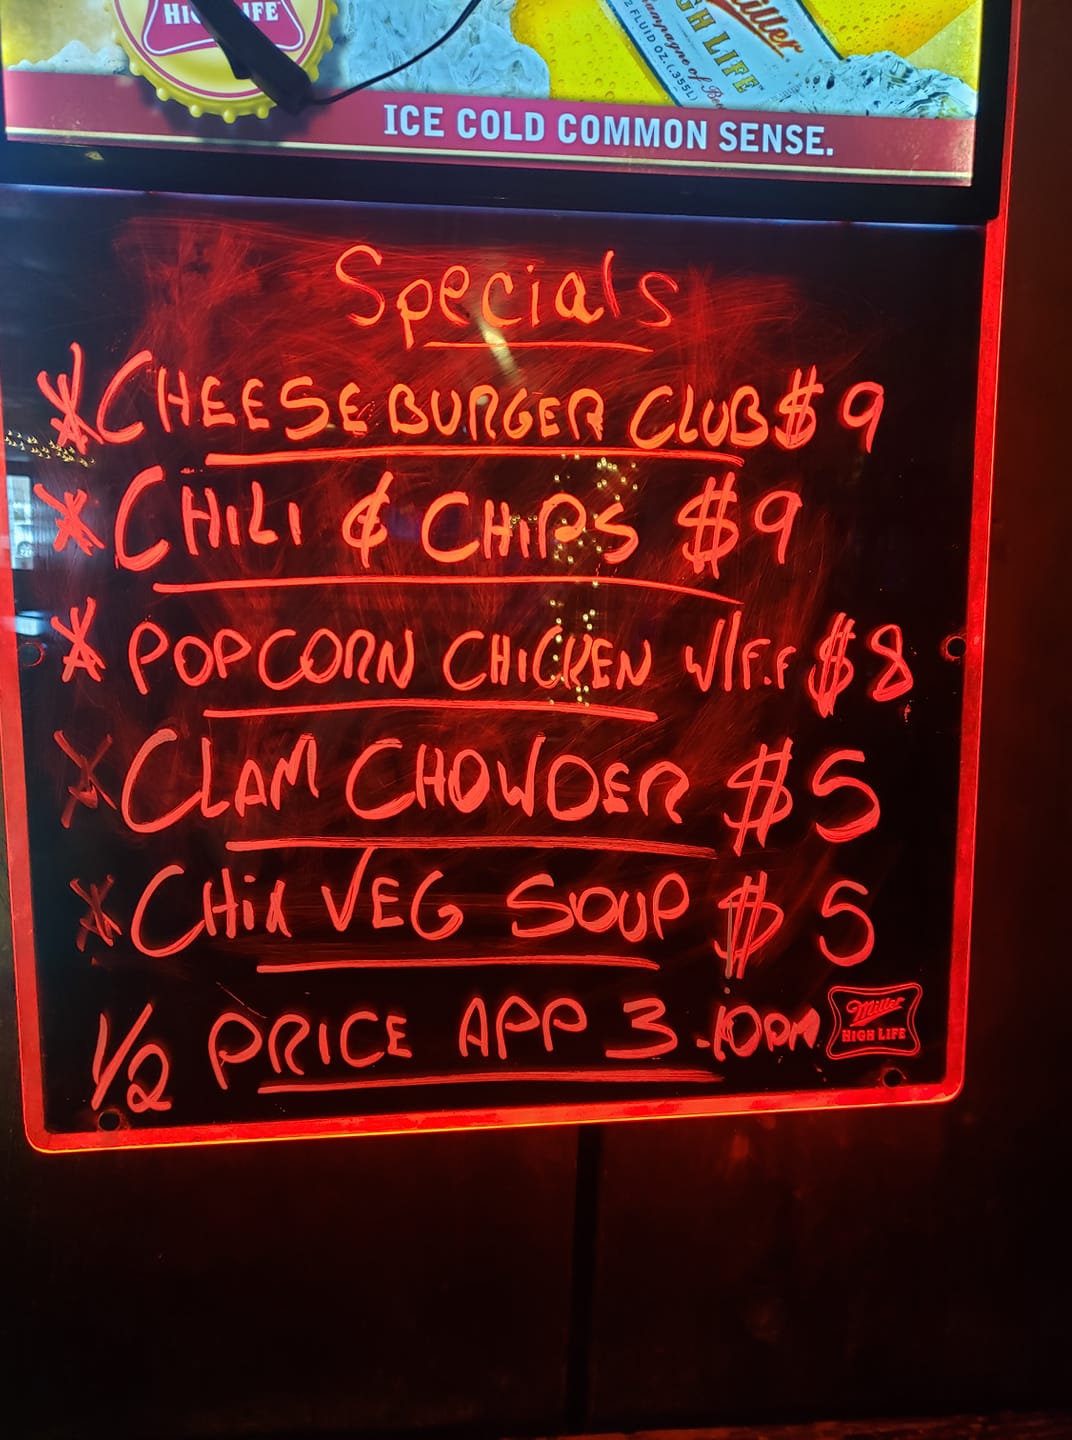 HIGH LIFE
Miller
HIGH LIFE
Champagne of Be
2 FLUID OZ. (.355L)
ICE COLD COMMON SENSE.
Specials
* CHEESEBURGER CLUB $9
* CHILI & CHIPS $9
* POPCORN CHICKEN W/F.F $8
* CLAM CHOWDER $5
* CHIX VEG SOUP $5
1/2 PRICE APP 3-10PM
Miller
HIGH LIFE